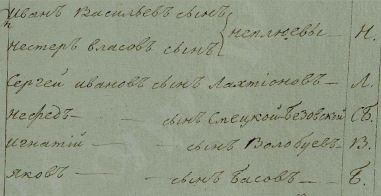 Иванъ Васильевъ сынъ
Нестеръ власовъ сынъ } неплюевы — Н.
Сергей ивановъ сынъ Лахтіоновъ — Л.
Нефедъ — сынъ Спецкой-Безовской СБ.
игнатій — сынъ Волобуевъ — В.
яковъ — сынъ Басовъ — Б.